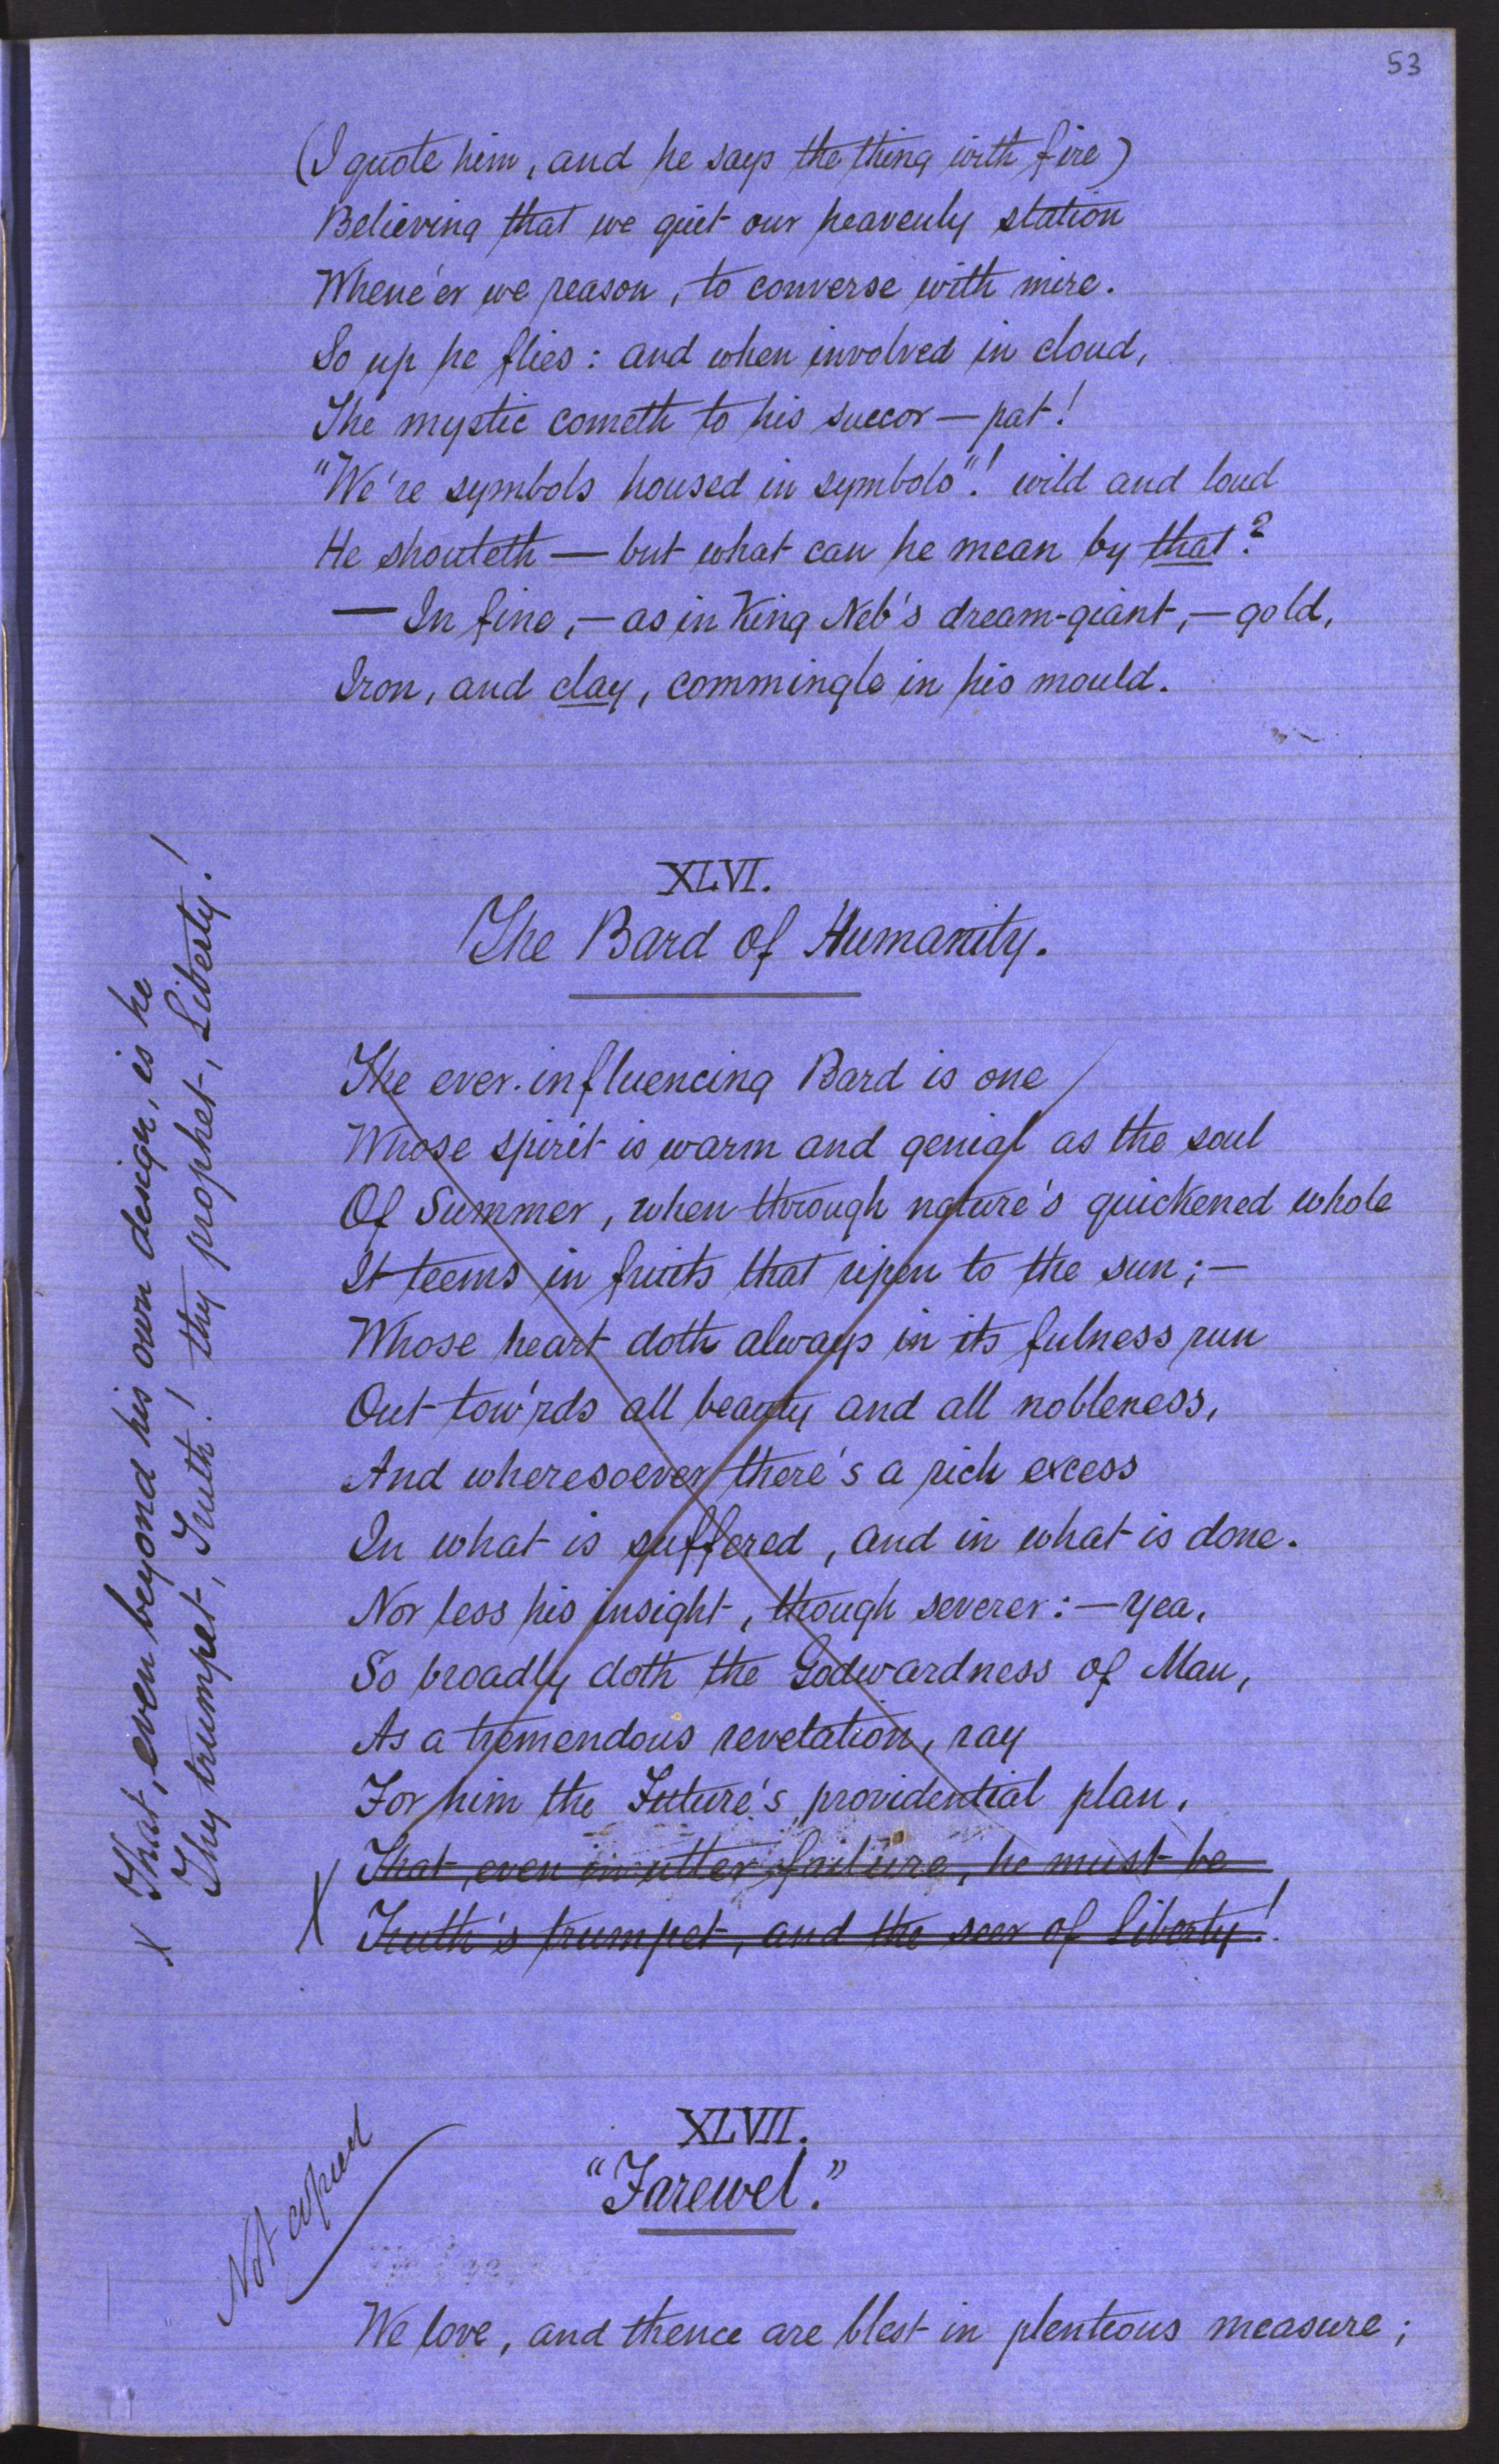 53
(I quote him, and he says the thing with fire)
Believing that we quit our heavenly station
Whene'er we reason, to converse with mire.
So up he flies: and when involved in cloud,
The mystic cometh to his succor — pat!
"We're symbols housed in symbols"! wild and loud
He shouteth — but what can he mean by that?
— In fine, — as in King Neb's dream-giant, — gold,
Iron, and clay, commingle in his mould.
XLVI.
The Bard of Humanity.
The ever-influencing Bard is one
Whose spirit is warm and genial as the soul
Of Summer, when through nature's quickened whole
It teems in fruits that ripen to the sun; —
Whose heart doth always in its fulness run
Out tow'rds all beauty and all nobleness,
And wheresoever there's a rich excess
In what is suffered, and in what is done.
Nor less his insight, though severer: — yea,
So broadly doth the Godwardness of Man,
As a tremendous revelation, ray
For him the Future's providential plan,
X That, even in utter failure, he must be
Truth's trumpet, and the seer of Liberty!
X That, even beyond his own design, is he
Thy trumpet, Truth! thy prophet, Liberty!
Not copied
XLVII.
"Farewel."
We love, and thence are blest in plenteous measure;